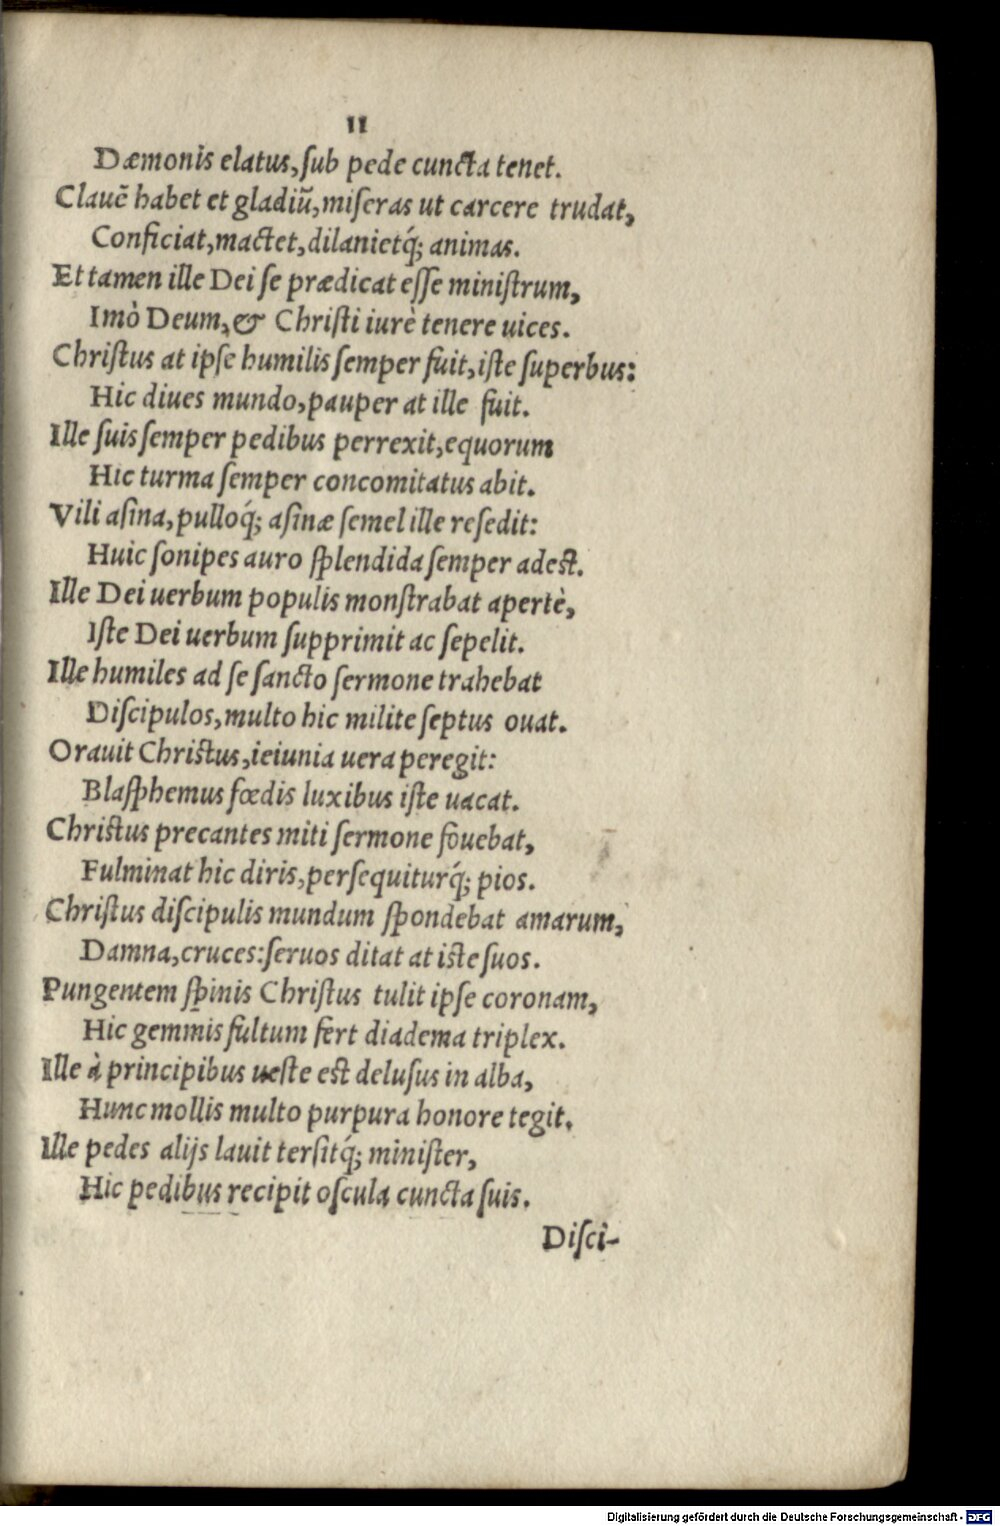 11
Dæmonis elatus, ſub pede cuncta tenet.
Clauē habet et gladiũ, miſeras ut carcere trudat,
Conficiat, mactet, dilanietq́; animas.
Et tamen ille Dei ſe prædicat eſſe miniſtrum,
Imò Deum, & Chriſti iurè tenere uices.
Chriſtus at ipſe humilis ſemper fuit, iſte ſuperbus:
Hic diues mundo, pauper at ille fuit.
Ille ſuis ſemper pedibus perrexit, equorum
Hic turma ſemper concomitatus abit.
Vili aſina, pulloq́; aſinæ ſemel ille reſedit:
Huic ſonipes auro ſplendida ſemper adeſt.
Ille Dei uerbum populis monſtrabat apertè,
Iſte Dei uerbum ſupprimit ac ſepelit.
Ille humiles ad ſe ſancto ſermone trahebat
Diſcipulos, multo hic milite ſeptus ouat.
Orauit Chriſtus, ieiunia uera peregit:
Blaſphemus fœdis luxibus iſte uacat.
Chriſtus precantes miti ſermone fouebat,
Fulminat hic diris, perſequiturq́; pios.
Chriſtus diſcipulis mundum ſpondebat amarum,
Damna, cruces: ſeruos ditat at iſte ſuos.
Pungentem ſpinis Chriſtus tulit ipſe coronam,
Hic gemmis fultum fert diadema triplex.
Ille à principibus ueſte eſt deluſus in alba,
Hunc mollis multo purpura honore tegit.
Ille pedes alijs lauit terſitq́; miniſter,
Hic pedibus recipit oſcula cuncta ſuis.
Diſci-
Digitalisierung gefördert durch die Deutsche Forschungsgemeinschaft - DFG